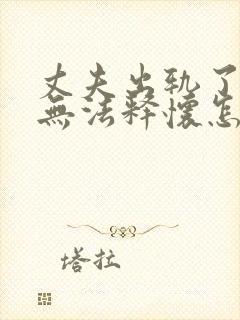 丈夫出轨了
無法释懷怎
塔拉